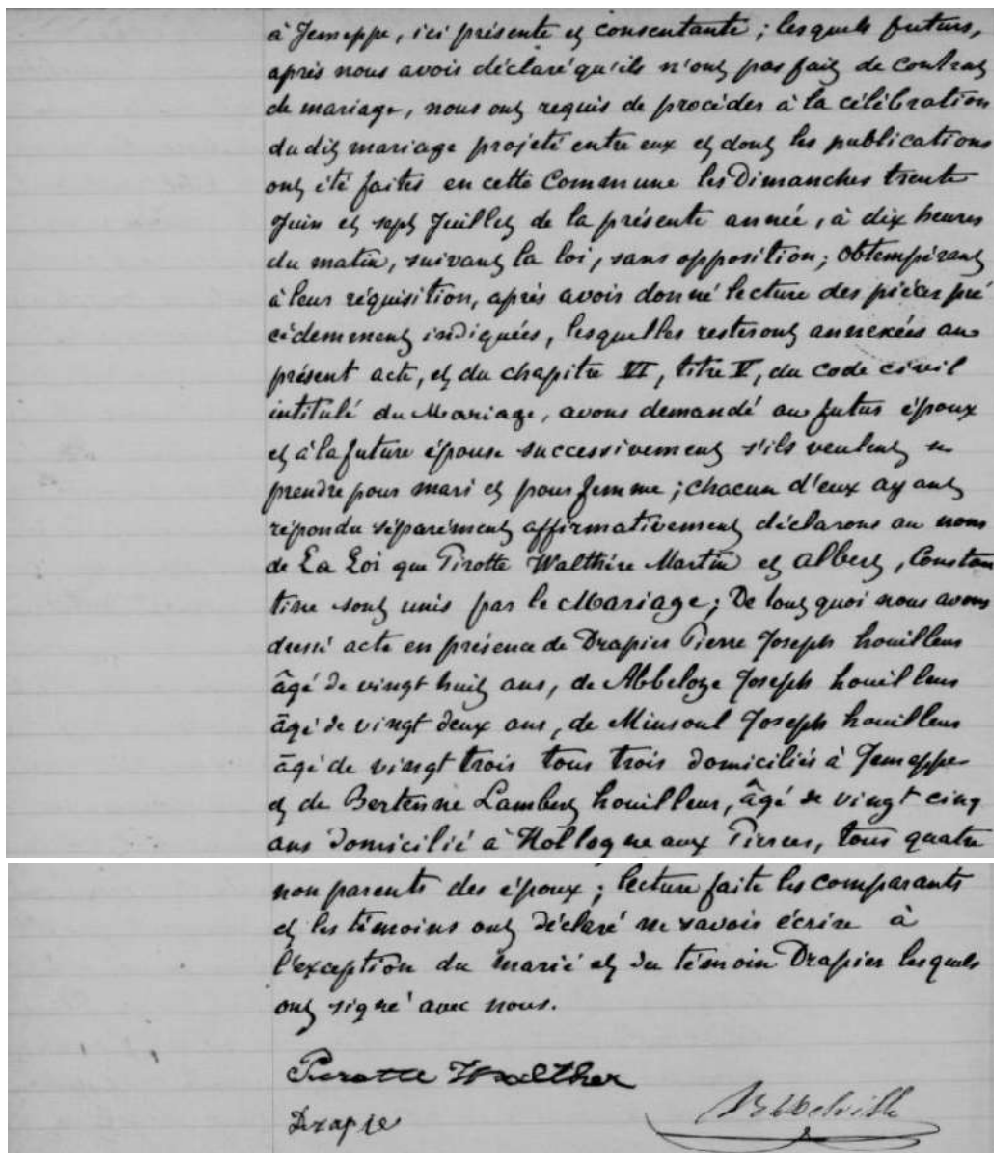 à Jemeppe, ici présente et consentante ; lesquels futurs,
après nous avoir déclaré qu'ils n'ont pas fait de contrat
de mariage, nous ont requis de procéder à la célébration
du dit mariage projeté entre eux et dont les publications
ont été faites en cette Commune les Dimanches trente
Juin et sept Juillet de la présente année, à dix heures
du matin, suivant la loi, sans opposition ; obtempérant
à leur réquisition, après avoir donné lecture des pièces pré
cédemment indiquées, lesquelles resteront annexées au
présent acte, et du chapitre VI, titre V, du code civil
intitulé du Mariage, avons demandé au futur époux
et à la future épouse successivement s'ils veulent se
prendre pour mari et pour femme ; chacun d'eux ayant
répondu séparément affirmativement déclarons au nom
de La Loi que Pirotte Walthère Martin et Albert, Constan
tine sont unis par le Mariage ; De tout quoi nous avons
dressé acte en présence de Drapier Pierre Joseph houilleur
âgé de vingt huit ans, de Abbeloze Joseph houilleur
âgé de vingt deux ans, de Minsoul Joseph houilleur
âgé de vingt trois tous trois domiciliés à Jemeppe
et de Bertenne Lambert houilleur, âgé de vingt cinq
ans domicilié à Hollogne aux Pierres, tous quatre
non parents des époux ; lecture faite les comparants
et les témoins ont déclaré ne savoir écrire à
l'exception du marié et du témoin Drapier lesquels
ont signé avec nous.
Pirotte Walther
Drapie